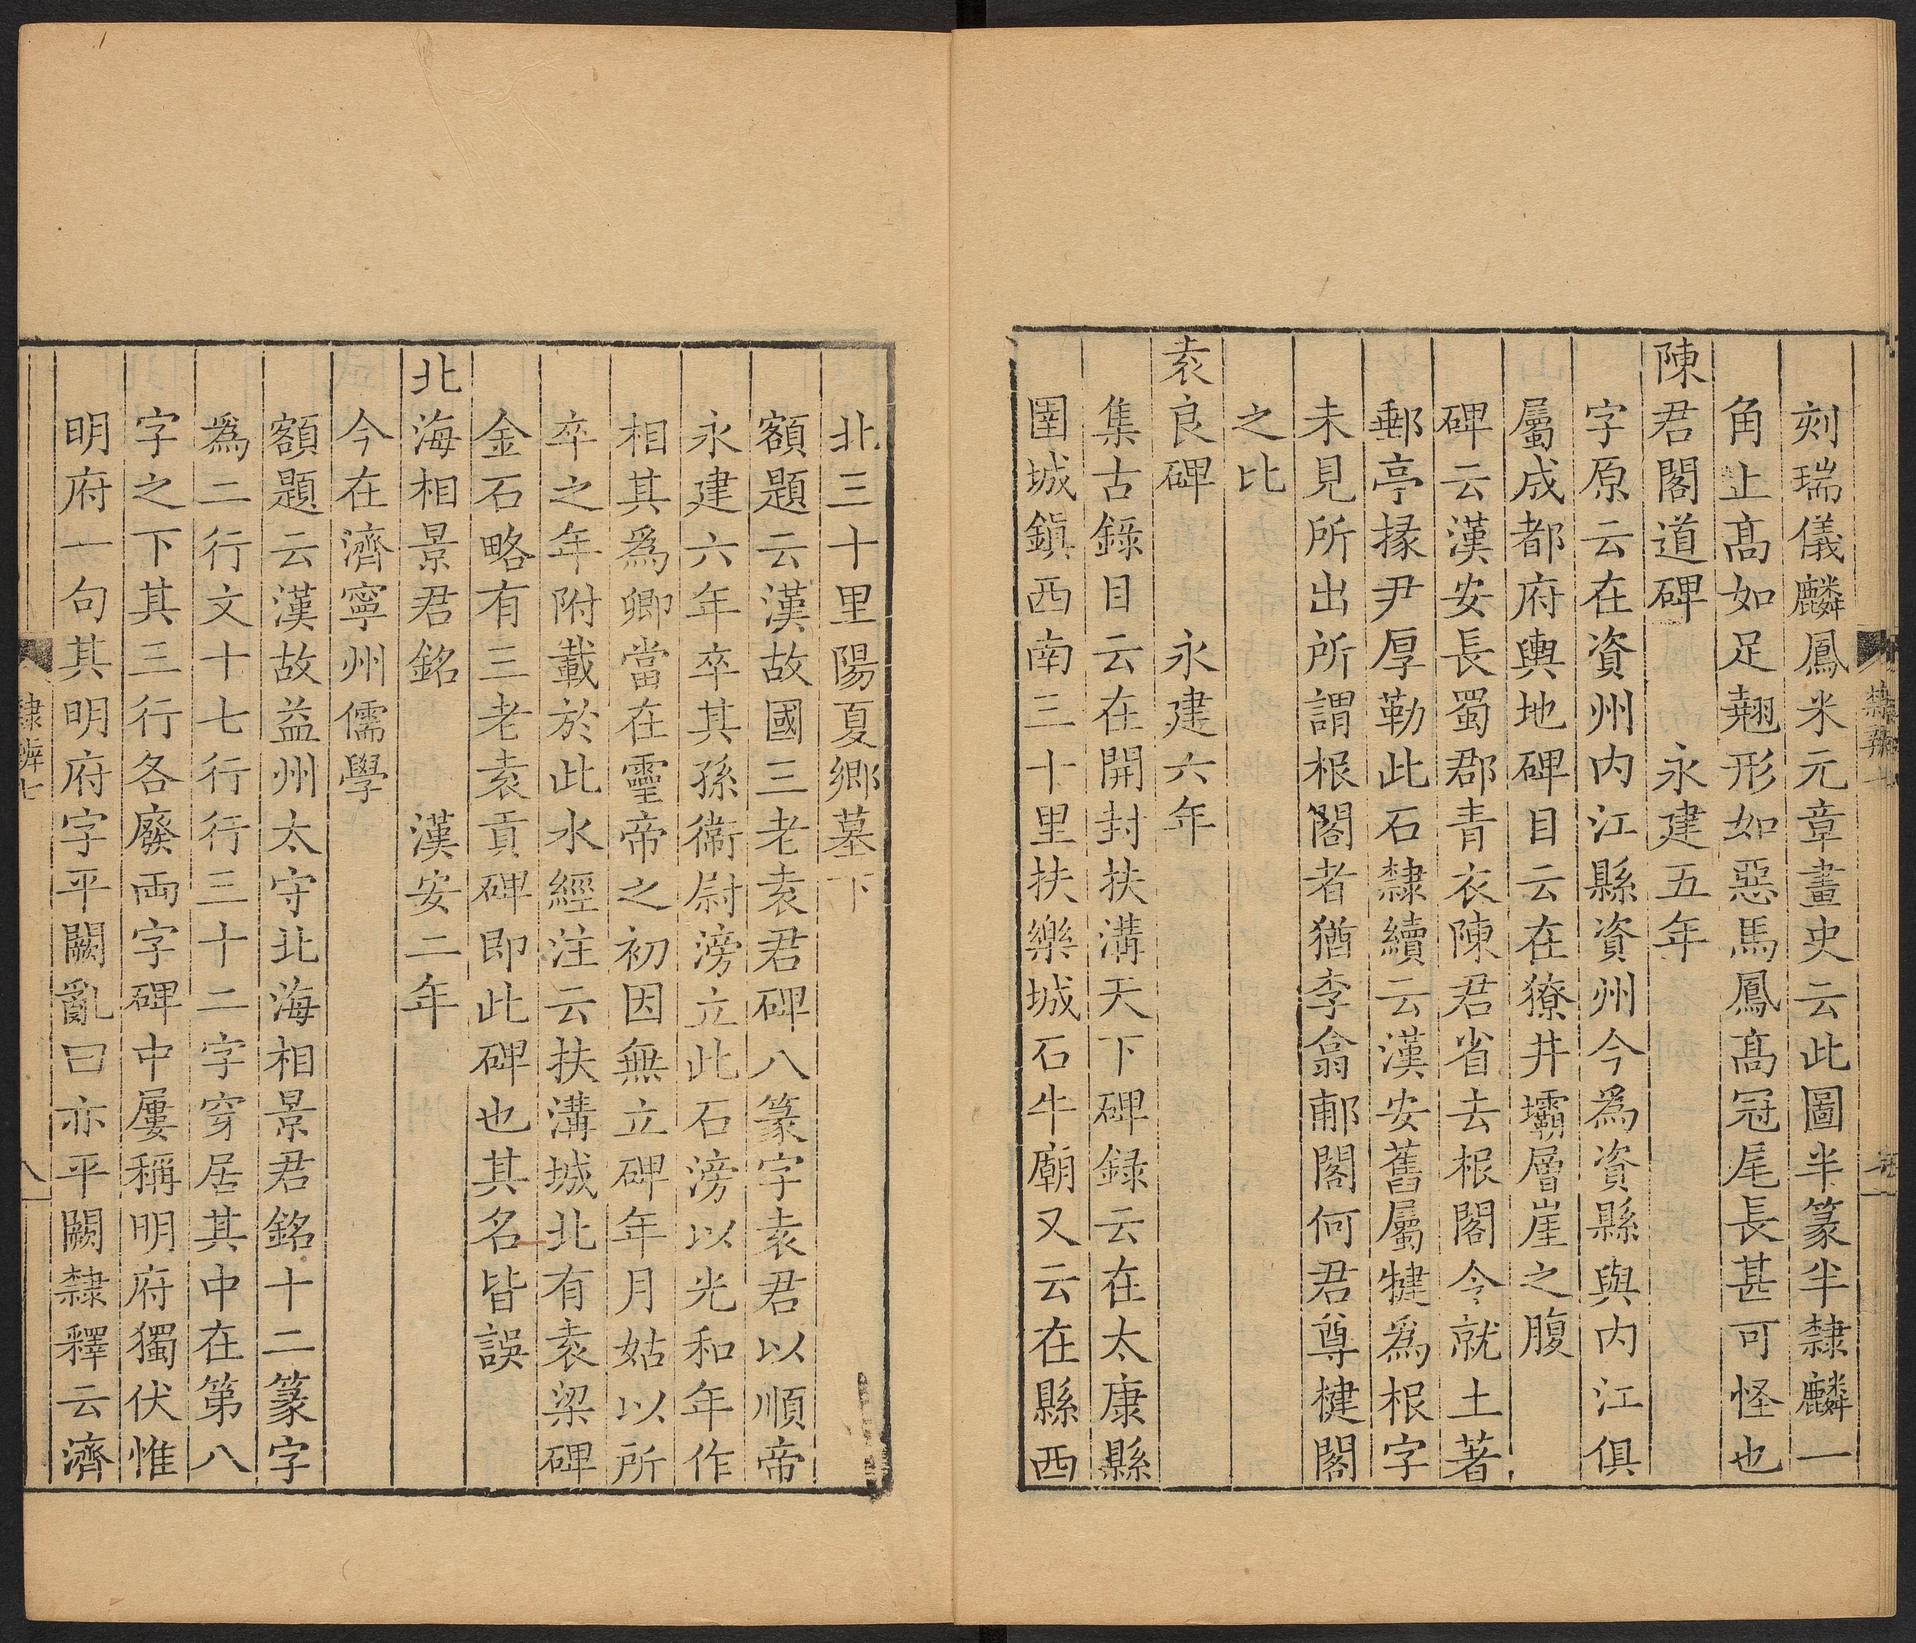 刻瑞儀麟鳳米元章畫史云此圖半篆半隸麟一
角止髙如足翹形如惡馬鳳髙冠尾長甚可怪也
陳君閣道碑　永建五年
字原云在資州内江縣資州今爲資縣與内江俱
屬成都府輿地碑目云在獠井壩層崖之腹
碑云漢安長蜀郡青衣陳君省去根閣令就土著
郵亭掾尹厚勒此石隸續云漢安舊屬犍爲根字
未見所出所謂根閣者猶李翕郙閣何君尊楗閣
之比
袁良碑　永建六年
集古錄目云在開封扶溝天下碑録云在太康縣
圉城鎭西南三十里扶樂城石牛廟又云在縣西
北三十里陽夏鄉墓下
額題云漢故國三老袁君碑八篆字袁君以順帝
永建六年卒其孫衞尉滂立此石滂以光和年作
相其爲卿當在靈帝之初因無立碑年月姑以所
卒之年附載於此水經注云扶溝城北有袁梁碑
金石略有三老袁貢碑即此碑也其名皆誤
北海相景君銘　漢安二年
今在濟寧州儒學
額題云漢故益州太守北海相景君銘十二篆字
爲二行文十七行行三十二字穿居其中在第八
字之下其三行各廢兩字碑中屢稱明府獨伏惟
明府一句其明府字平闕亂曰亦平闕隸釋云濟
隸辨七
八